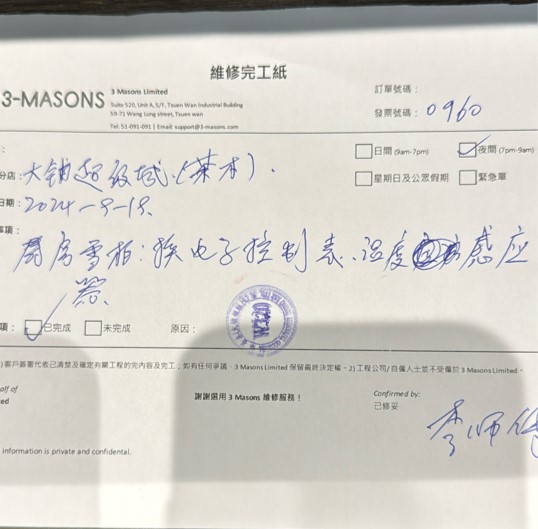 維修完工紙
3-MASONS
3 Masons Limited
Suite 520, Unit A, 5/F, Tsuen Wan Industrial Building
59-71 Wang Lung street, Tsuen wan
Tel: 51-091-091 | Email: support@3-masons.com
訂單號碼：
發票號碼：0960
日間 (9am-7pm)
夜間 (7pm-9am)
分店：大埔超級城（茶木）.
星期日及公眾假期
緊急單
日期：2024-9-18.
事項：
房雪柜：换电子控制表、温度感应
器
項：
已完成
未完成
原因：
客戶簽署代表已清楚及確定有關工程的完內容及完工；如有任何爭議，3 Masons Limited 保留最終決定權。2) 工程公司/自僱人士並不受僱於 3 Masons Limited。
half of
ed
謝謝選用 3 Masons 維修服務！
Confirmed by:
已修妥
李师傅
information is private and confidental.